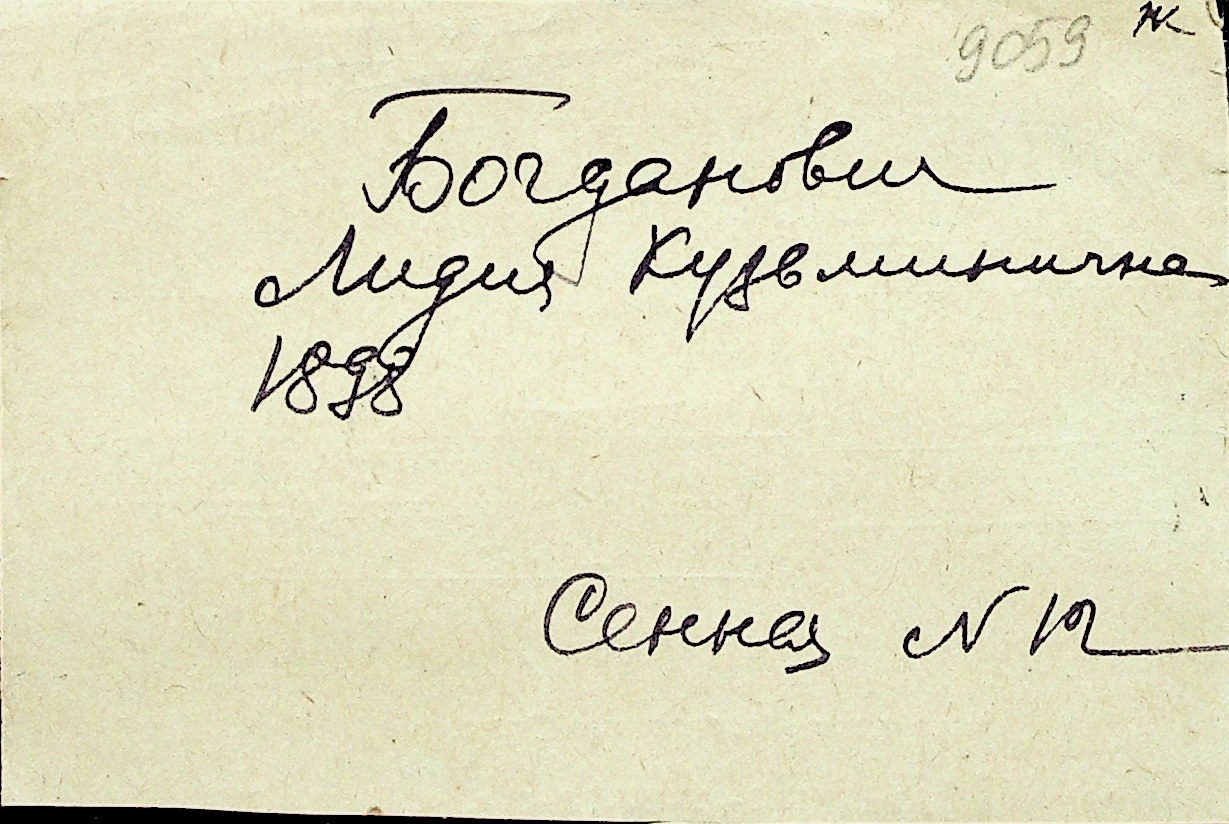 9059 ж
Богданович
Лидия Кузьминична
1898
Сенная N 12